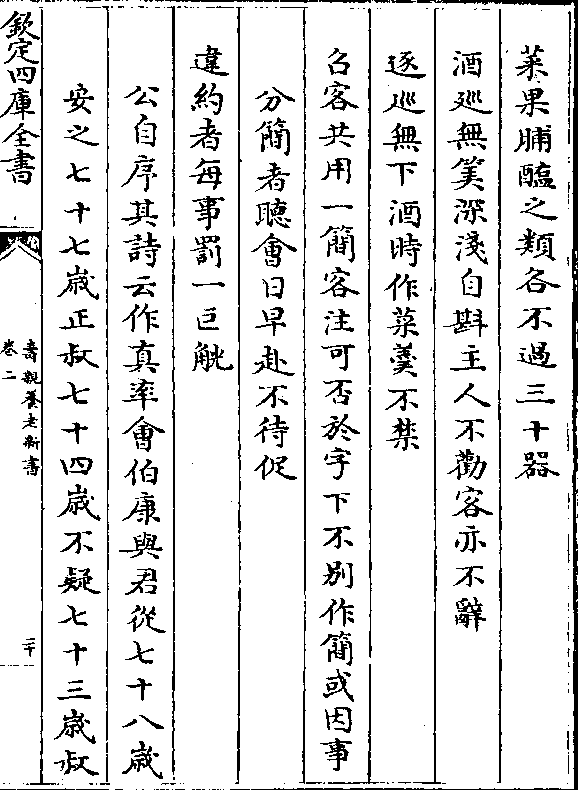 菜果脯醢之類各不過三十器
酒廵無筭深淺自斟主人不勸客亦不辭
逐廵無下酒時作菜羮不禁
召客共用一簡客注可否於字下不別作簡或因事
分簡者聽會日早赴不待促
違約者每事罰一巨觥
公自序其詩云作真率會伯康與君從七十八歳
安之七十七歳正叔七十四歳不疑七十三歳叔
欽定四庫全書
壽親養老新書
卷二
二十